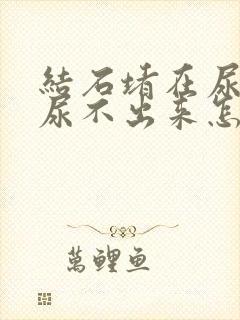 結石堵在尿
尿不出来怎
萬鲤鱼